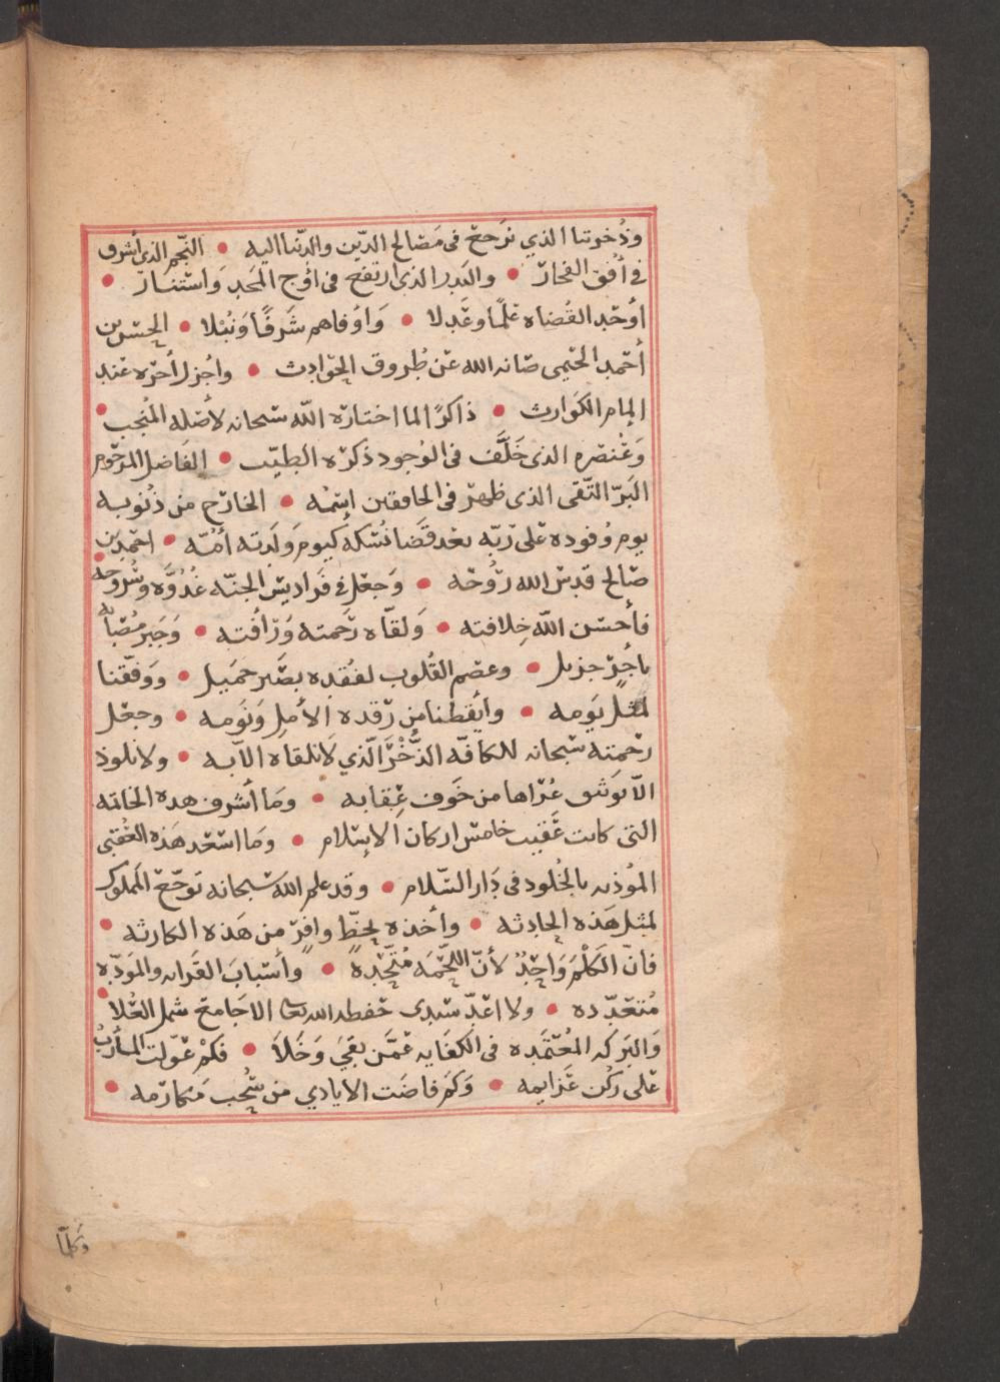 وذُخرتنا الذي نرجع في مَصالح الدّين والدّنيا اليه • النّجم الذي أشرق
في أفق الفخار • والبدر الذي ارتفع في أوج المَجد وَاستنار •
أوحَد القُضاه عِلمًا وعَدلا • وَاوفاهم شرَفًا وَنُبْلا • الحسن بن
أحمد الحَيمي صَانه الله عَن طُروق الحَوادث • وأجزل أجره عند
إلمام الكوارث • ذاكرًا لما اختاره الله سبحانه لأصله المُنجب •
وَعُنصره الذي خَلَّف في الوُجود ذكره الطيّب • الفَاضل المرحوم
البَرّ التّقي الذي ظهر في الخافقين اسْمُه • الخارج من ذُنوبه
يوم وُفوده على رَبّه بعد قَضَا نُسْكه كيوم وَلَدته أُمّه • احمد بن
صَالح قدس الله رُوحَه • وَجعل في فَراديس الجنّه غُدُوَّه وَسُروحه •
فأحسَن الله خِلافته • وَلقّاه رَحمته وَرَأفته • وَجَبر مُصَابه
باجْرٍ جزيل • وعصم القُلوب لفقده بصَبر جميل • وَوفّقنا
لمثل يَومه • وأيقظنا من رَقدة الأمل وَنَومه • وجعل
رحمته سبحانه للكافّه الذُّخْرَ الّذي لا نلقاه الا به • ولا نلوذ
الّا بوَثيق عُرَاها من خَوف عِقابه • وَما أشرف هذه الخاتمه
التي كانت عَقيب خامس اركان الإسلام • وَما اسْعَد هَذه العُقبى
المُوذنه بالخُلود في دَار السّلام • وقد علم الله سبحانه تَوجّع المَملوك
لمثل هَذه الحادثه • وأخذه بحظّ وافرٍ من هَذه الكارثه •
فانّ الكَلْمَ وَاحِدٌ لأنّ اللُّحْمَه مُتّحِدهٌ • وأسْبابَ القَرابه والمَودّه
مُتعَدّده • ولا اعُدّ سَيدي حفظه الله تعالى الا جَامع شمل العُلا •
وَالبَركه المُعْتَمَده في الكفَايه عمَّن بقيَ وَخَلاَ • فَكَمْ عوّلت المآربُ
عَلى رُكن عَزايمه • وَكم فاضَت الايادي من سُحُب مَكارمه •
وَكلّما